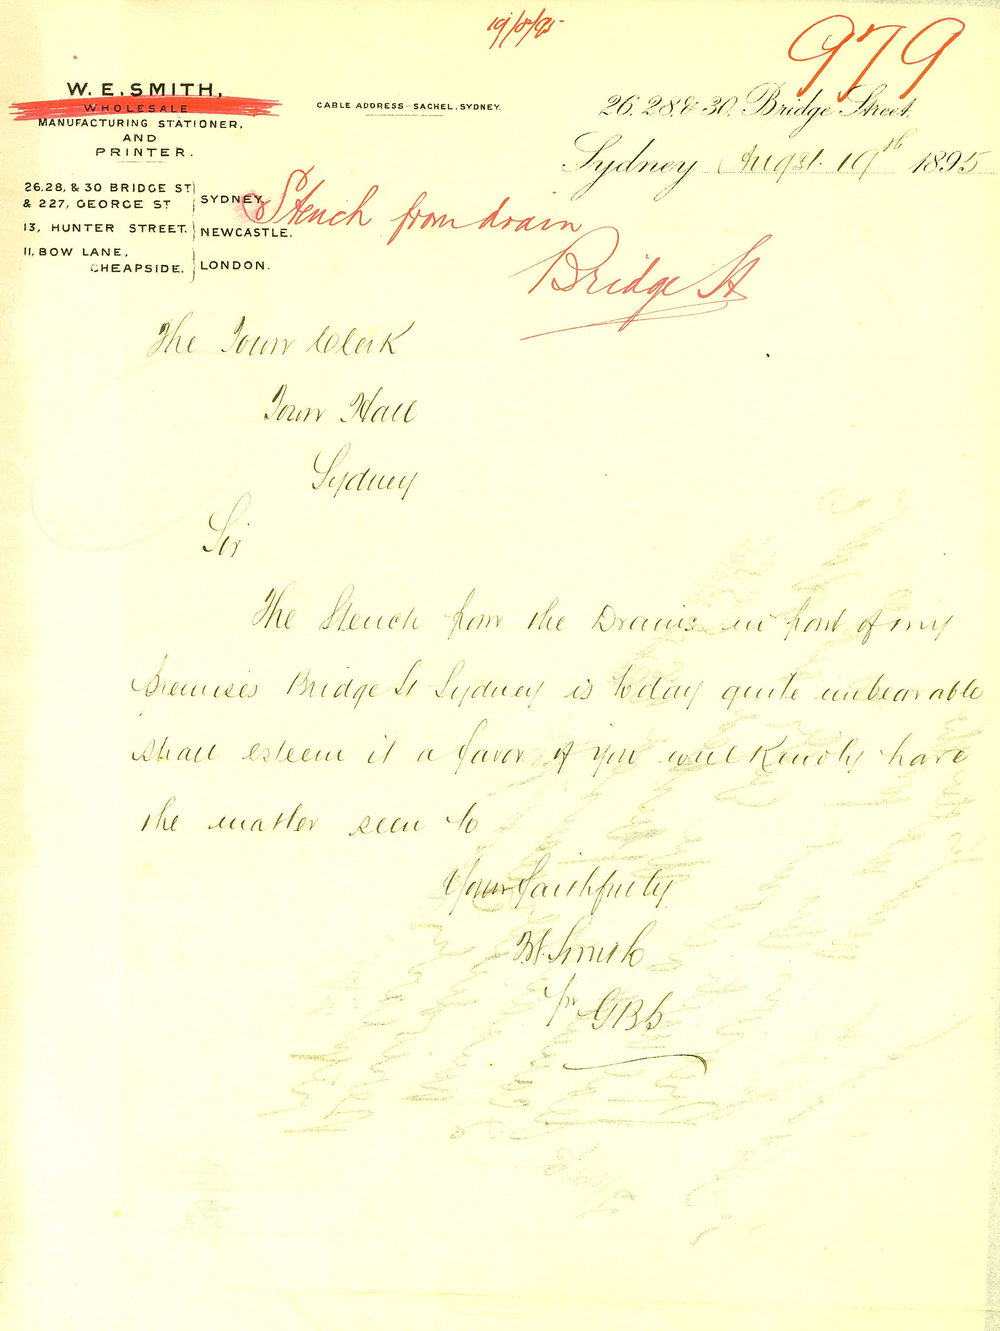 19/8/95
979
W. E. SMITH,
WHOLESALE
MANUFACTURING STATIONER,
AND
PRINTER.
CABLE ADDRESS - SACHEL, SYDNEY.
26, 28, & 30, Bridge Street,
Sydney Augst 19th 1895
26, 28, & 30 BRIDGE ST
& 227, GEORGE ST } SYDNEY,
13, HUNTER STREET. } NEWCASTLE.
11, BOW LANE,
CHEAPSIDE. } LONDON.
Stench from drain
Bridge St
The Town Clerk
Town Hall
Sydney
Sir
The Stench from the Drains in front of my
premises Bridge St Sydney is today quite unbearable
shall esteem it a favor if you will Kindly have
the matter seen to
Yours faithfully
Smith
pr GBS